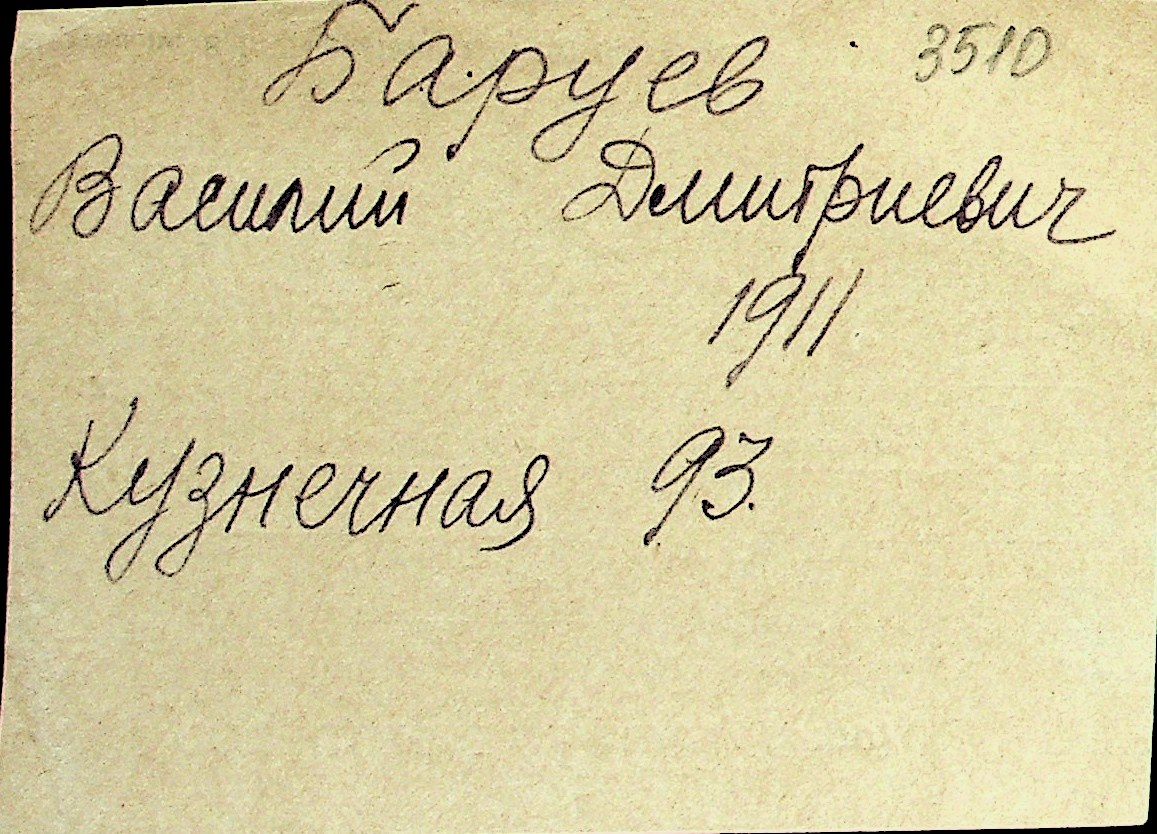 Баруев 3510
Василий Дмитриевич
1911
Кузнечная 93.